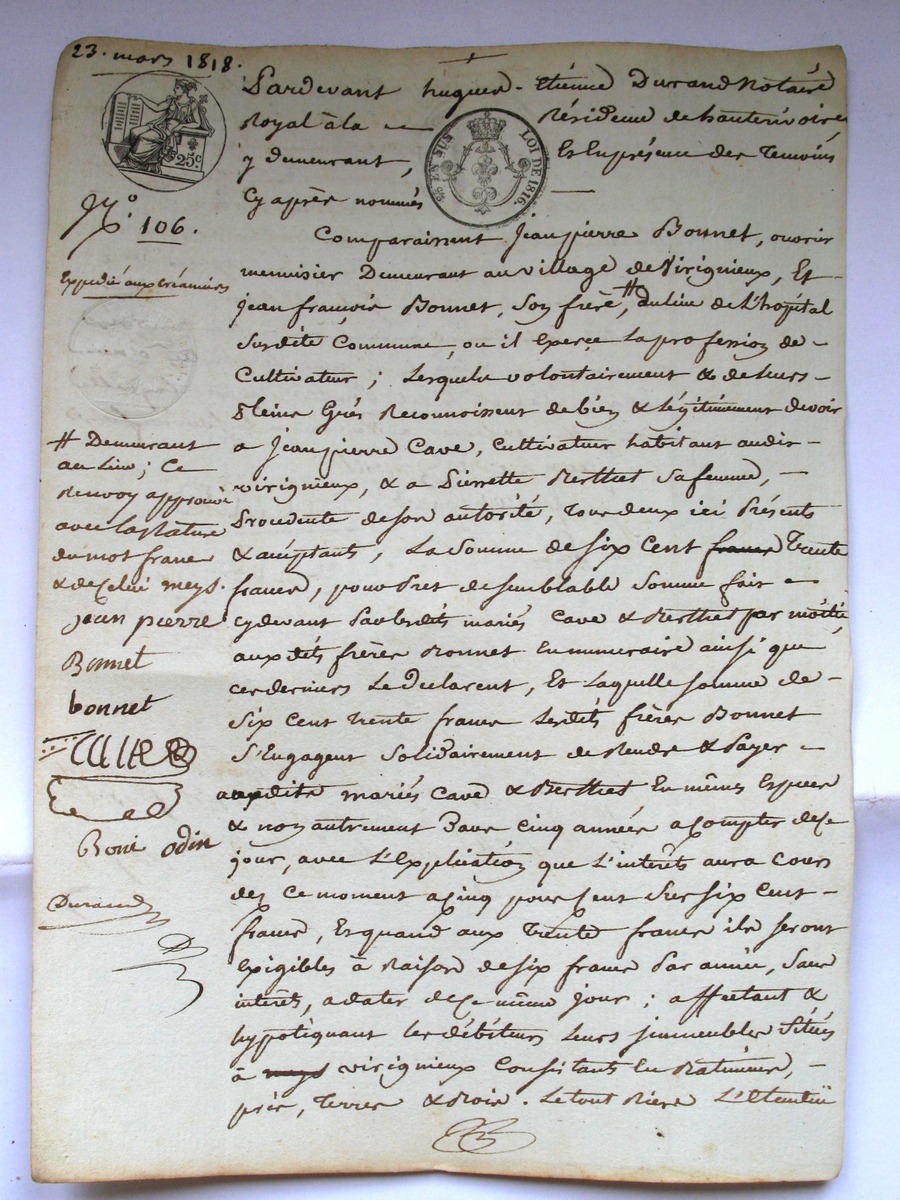 23. mars 1818.
25c
EN SUS
LOI DE 1816.
N.° 106.
Expedié aux créanciers
Pardevant hugues-Etienne Durand Notaire
Royal à la Résidence de hauterivoire
y demeurant, Et En présence des Temoins
Cy après nommés
Comparaissent Jean pierre Bonnet, ouvrier
menuisier Demeurant au village de Virignieux, Et
jean françois Bonnet, Son frère, # du lieu de L'hopital
Susdite Commune, ou il Exerce La profession de
Cultivateur ; Lesquels volontairement & de leurs
pleins Grés Reconnoissent de bien & légitimement devoir
a Jean pierre Cave, Cultivateur habitant audit
virignieux, & a Pierrette Berthet Sa femme,
Procedente de son autorité, Tous deux ici Présents
& acceptants, La Somme de Six Cent francs Trente
francs, pour Pret de semblable Somme fait
cydevant Par lesdits mariés Cave & Berthet par moitié,
auxdits frères Bonnet En numeraire ainsi que
ces derniers Le Déclarent, Et Laquelle Somme de
Six Cent Trente francs Lesdits frères Bonnet
S'Engagent Solidairement de Rendre & Payer
auxdits mariés Cave & Berthet En mêmes Especes
& non autrement Dans Cinq années a Compter de Ce
jour, avec L'Explication que L'intérêts aura Cours
dez Ce moment a Cinq pour Cent Sur Six Cent
francs, Et quand aux Trente francs ils Seront
Exigibles à Raison de Six francs Par année, Sans
intérêts, a dater de Ce même jour ; affectant &
hypotèquant les débiteurs Leurs immeubles Situés
à meys virignieux Consistants En Batiments,
prés, Terres & Bois. Le tout Riere L'Etendüe
# Demeurant
au Lieu ; Ce
Renvoy approuvé
avec la Rature
du mot francs
& de Celui meys.
jean pierre
Bonnet
bonnet
CAVE
odin
Durand